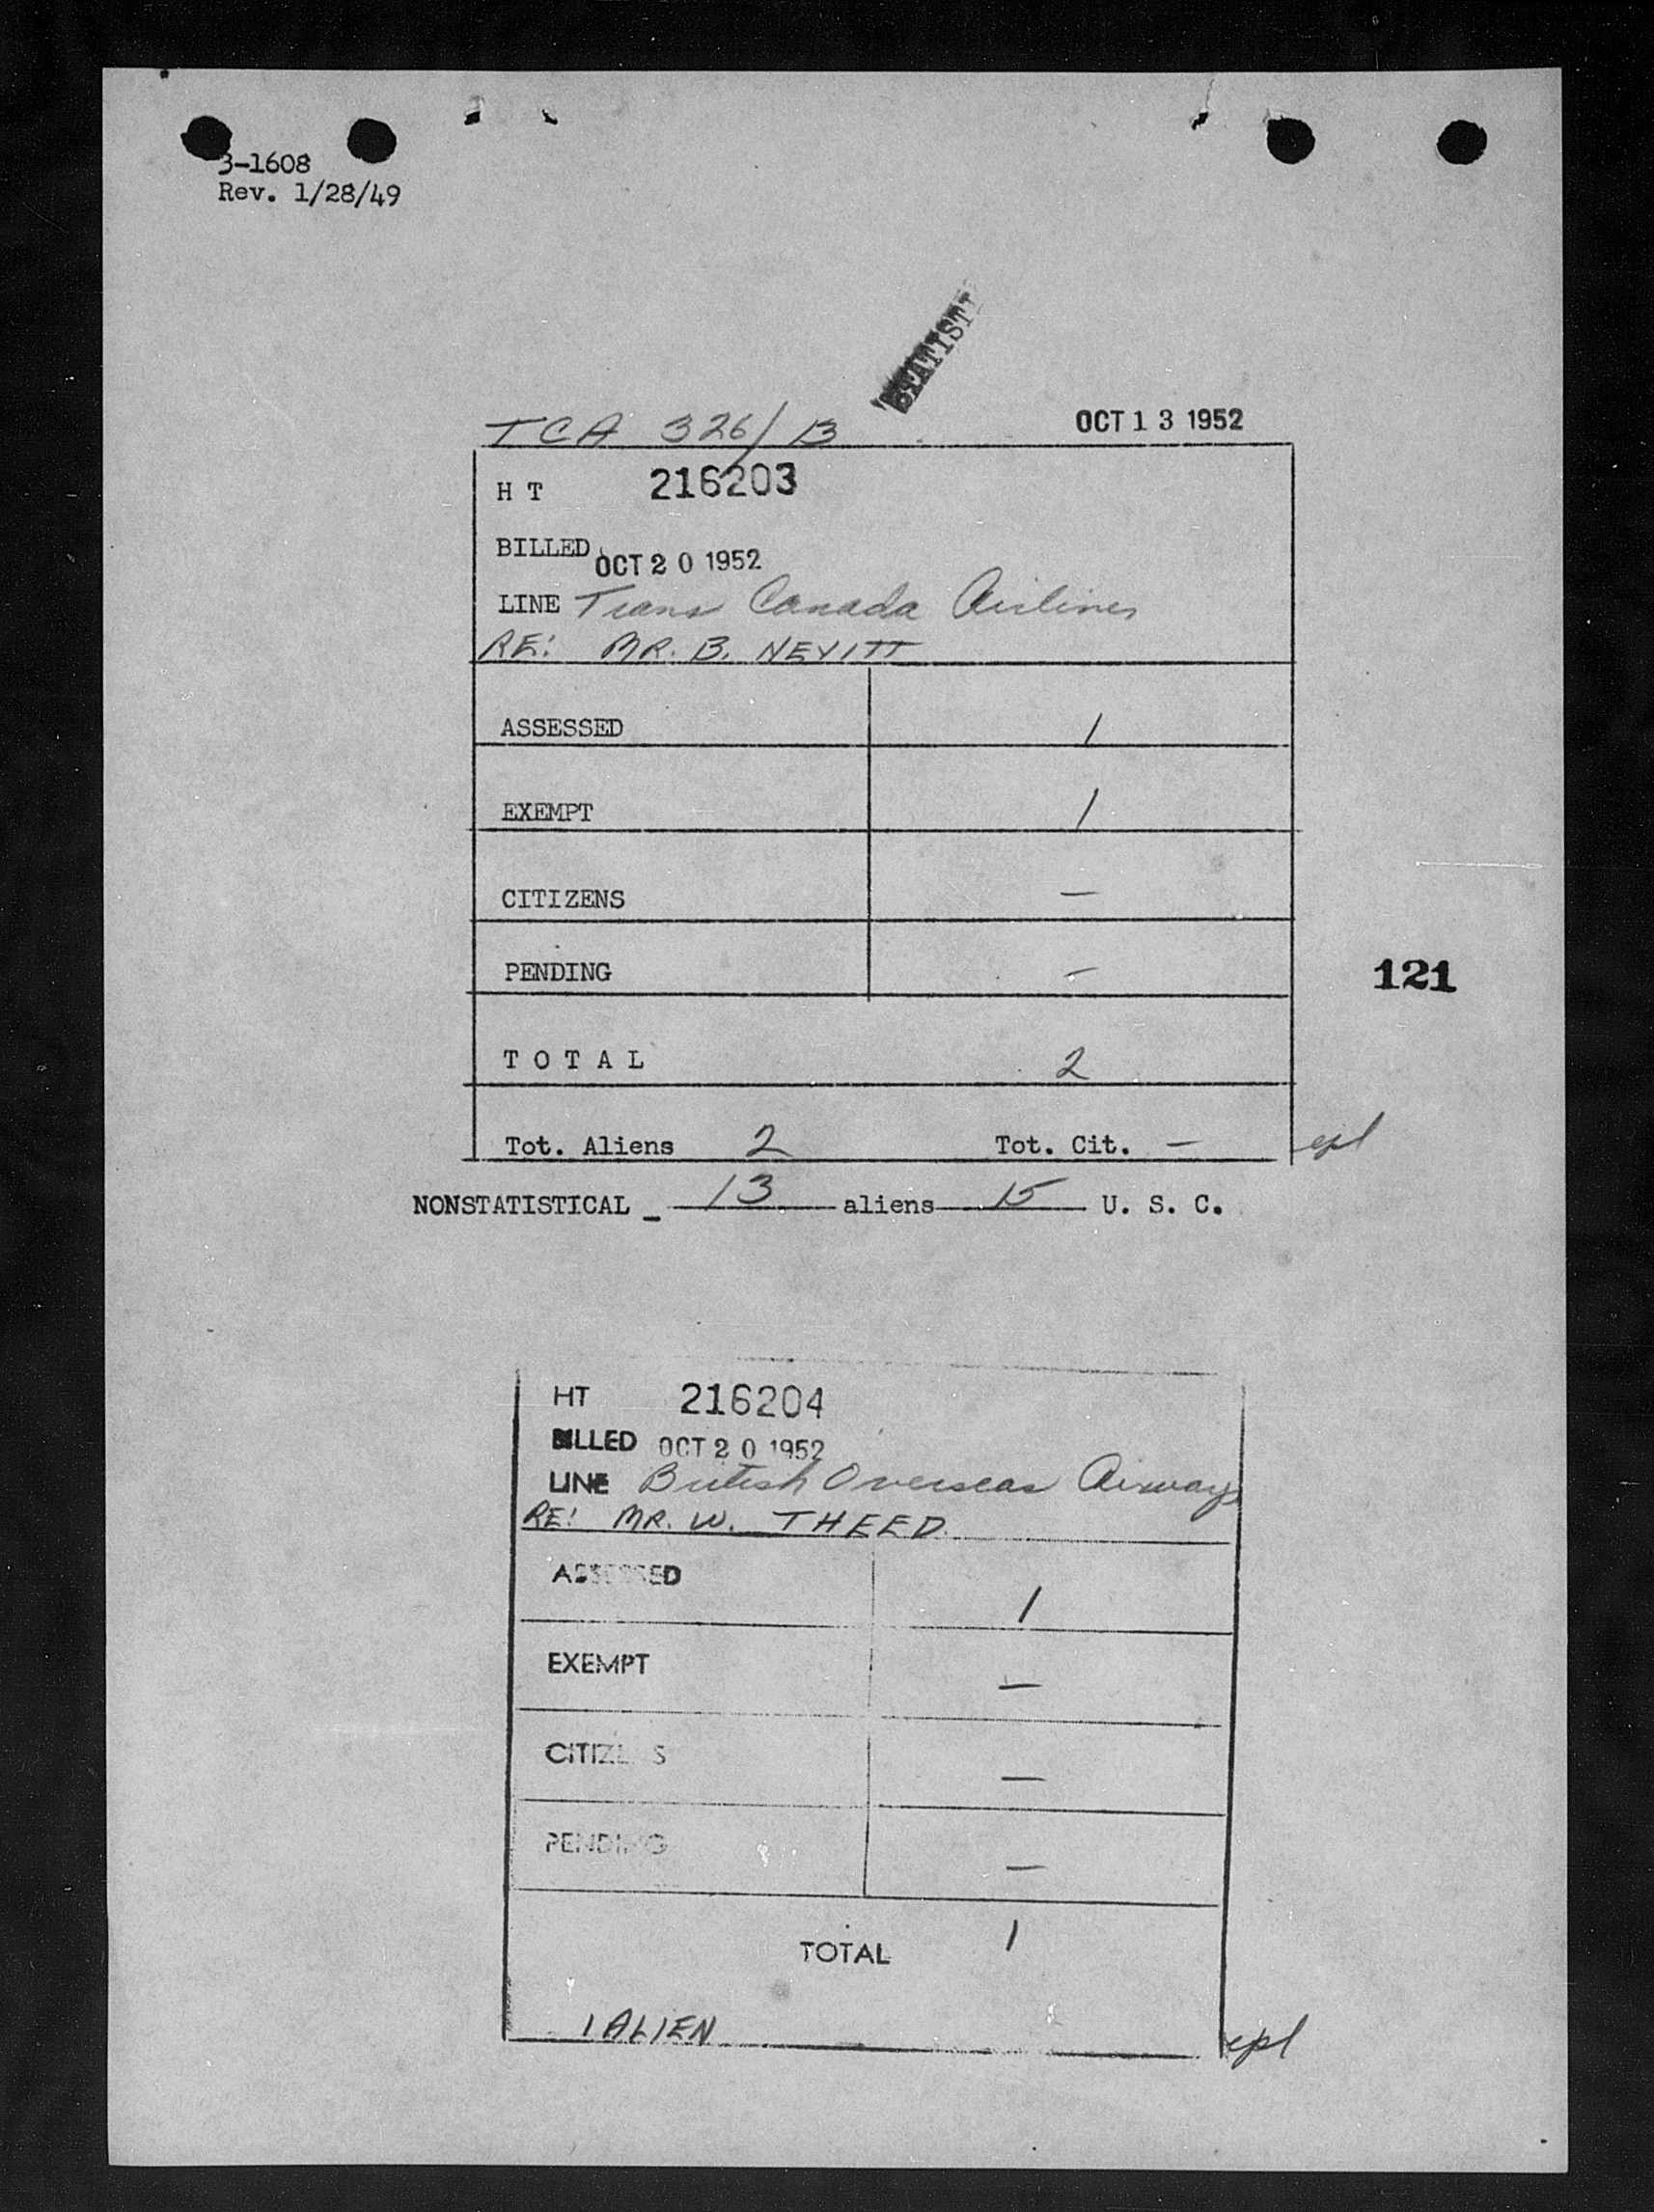 3-1608
Rev. 1/28/49
TCA 326/13 OCT 13 1952
H T 216203
BILLED OCT 20 1952
LINE Trans Canada Airlines
RE: MR. B. NEVITT
ASSESSED 1
EXEMPT 1
CITIZENS —
PENDING —
121
T O T A L 2
Tot. Aliens 2 Tot. Cit. — epl
NONSTATISTICAL _ 13 aliens 15 U. S. C.
HT 216204
BILLED OCT 20 1952
LINE British Overseas Airways
RE: MR. W. THEED
ASSESSED 1
EXEMPT —
CITIZENS —
PENDING —
TOTAL 1
1 ALIEN epl